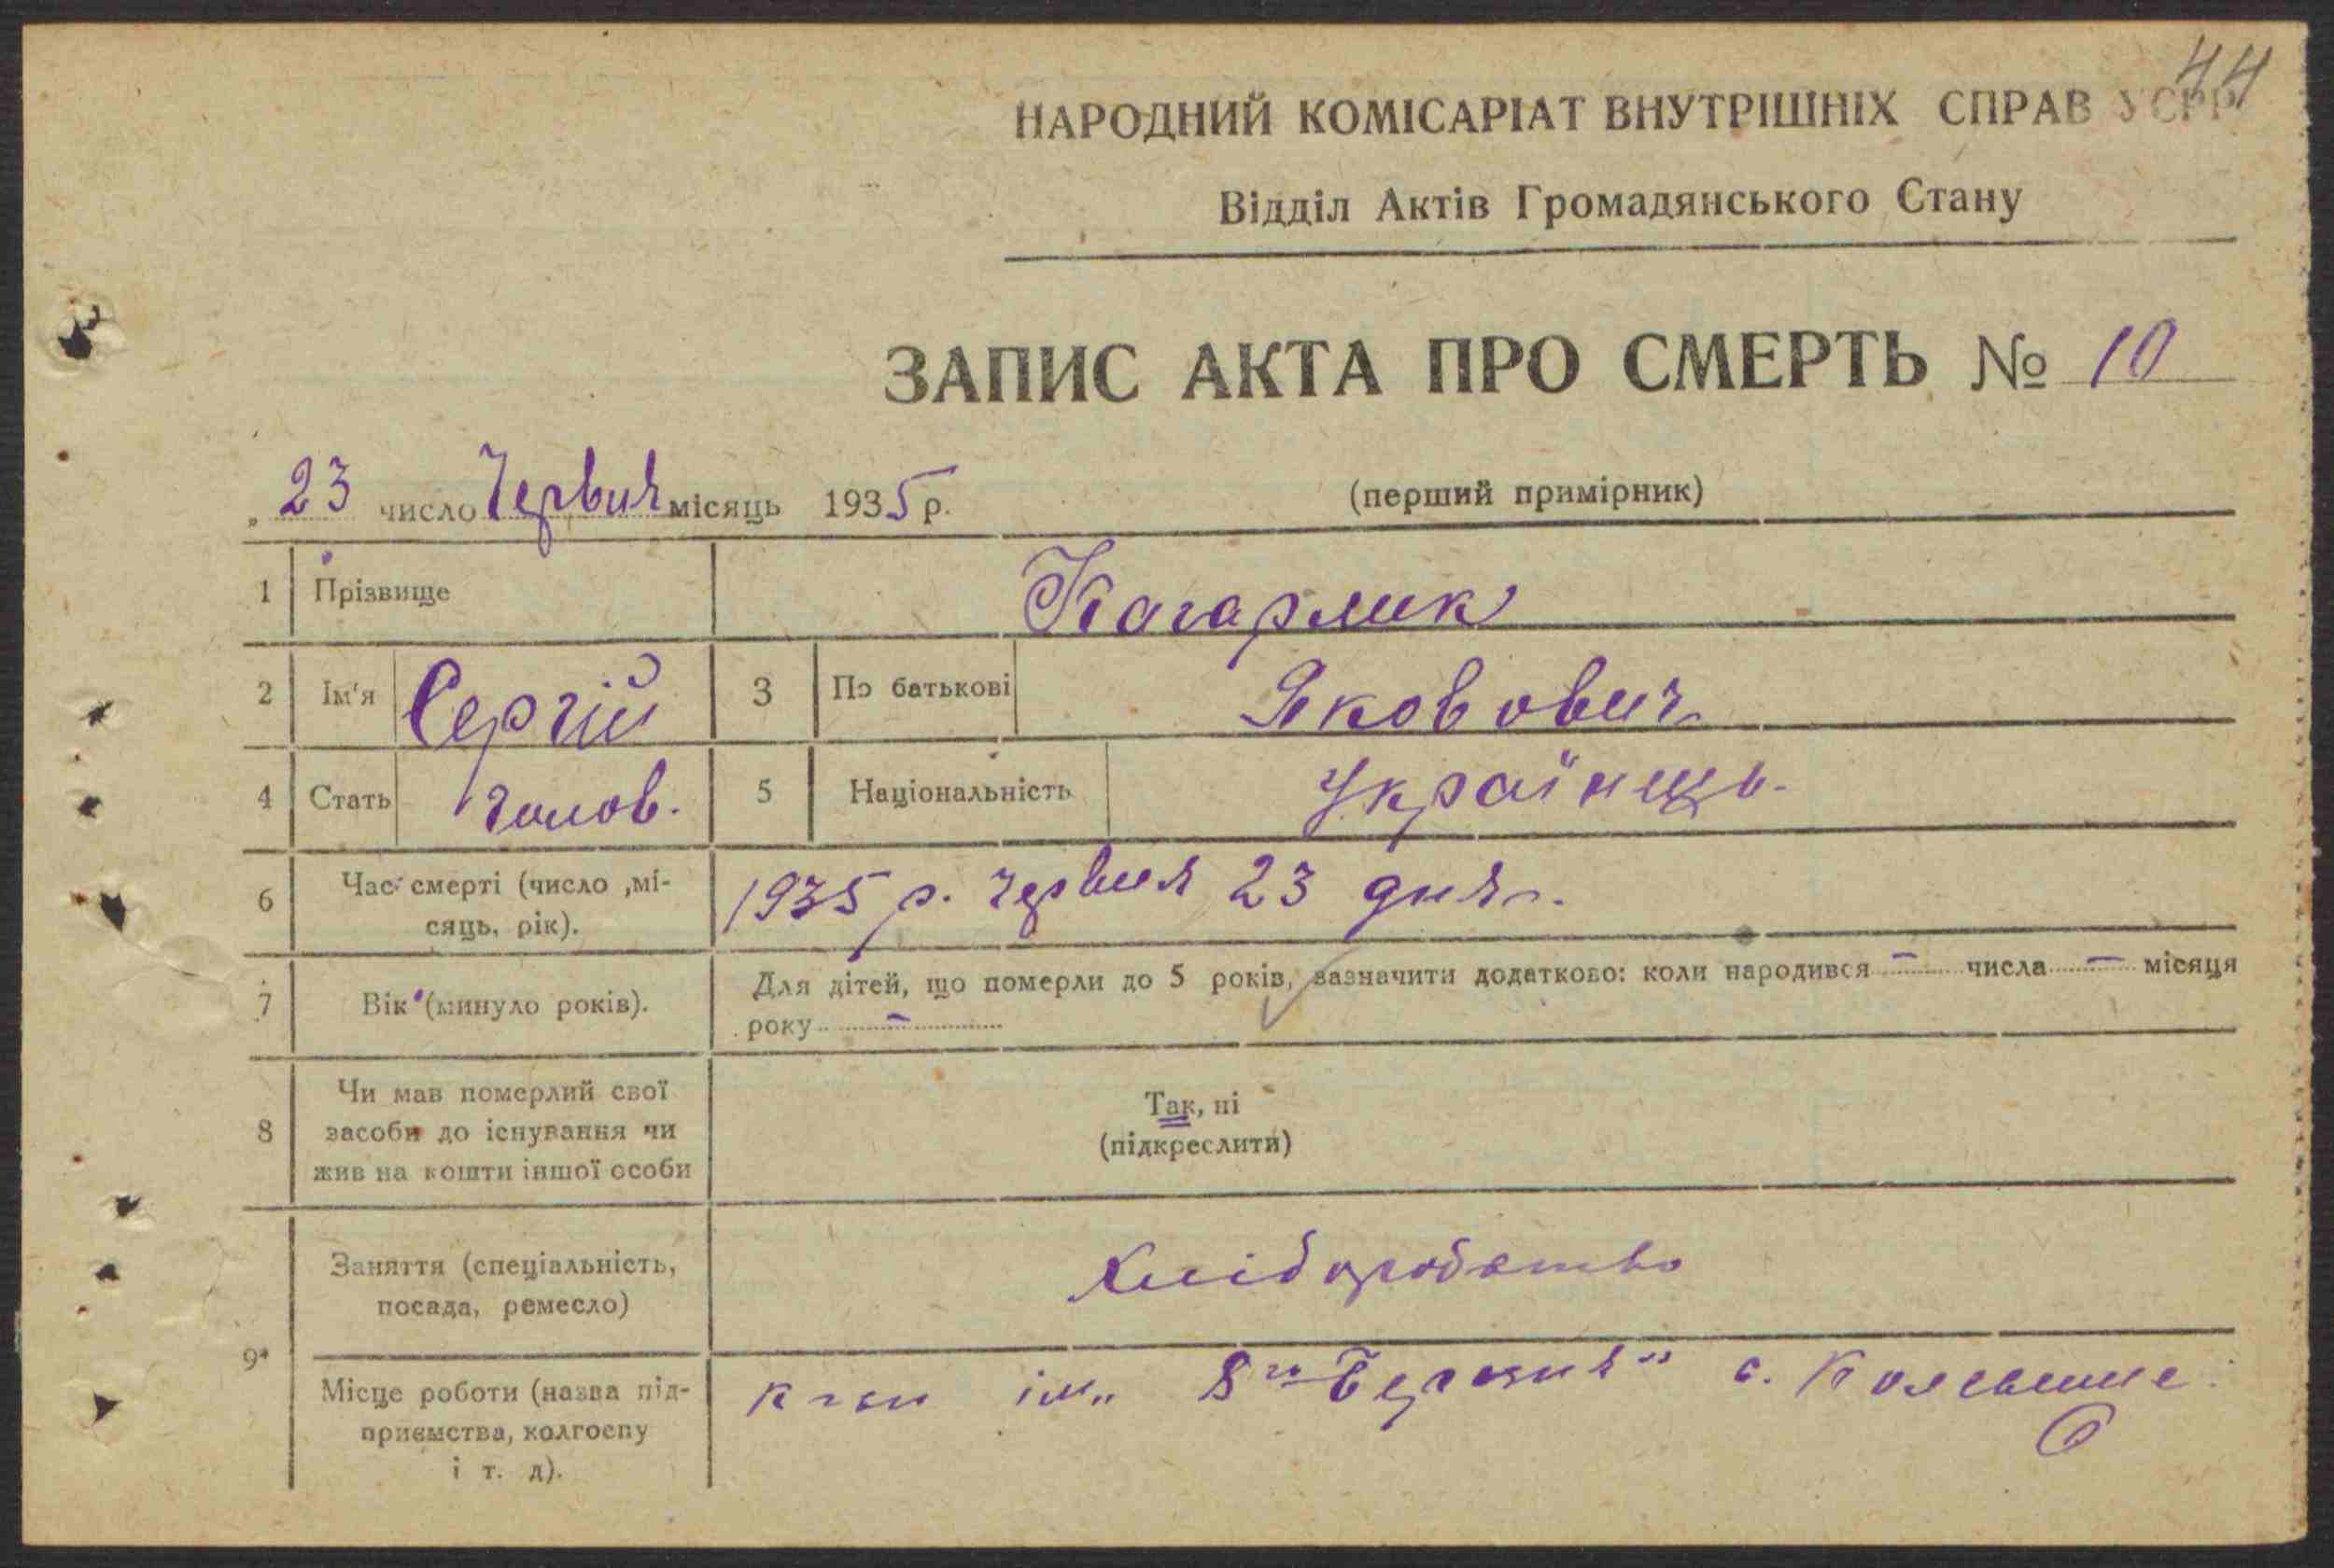 44
НАРОДНИЙ КОМІСАРІАТ ВНУТРІШНІХ СПРАВ УСРР
Відділ Актів Громадянського Стану
ЗАПИС АКТА ПРО СМЕРТЬ № 10
„ 23 число Червня місяць 1935 р.
(перший примірник)
1 Прізвище Кагарлик
2 Ім'я Сергій 3 По батькові Яковович
4 Стать чолов. 5 Національність Українець.
6 Час смерті (число ,мі-
сяць, рік).
1935 р. червня 23 дня.
7 Вік (минуло років).
Для дітей, що померли до 5 років, зазначити додатково: коли народився — числа — місяця
року —
8 Чи мав померлий свої
засоби до існування чи
жив на кошти іншої особи
Так, ні
(підкреслити)
9 Заняття (спеціальність,
посада, ремесло)
Хліборобство
Місце роботи (назва під-
приємства, колгоспу
і т. д).
ім„ 8го Березня" с.